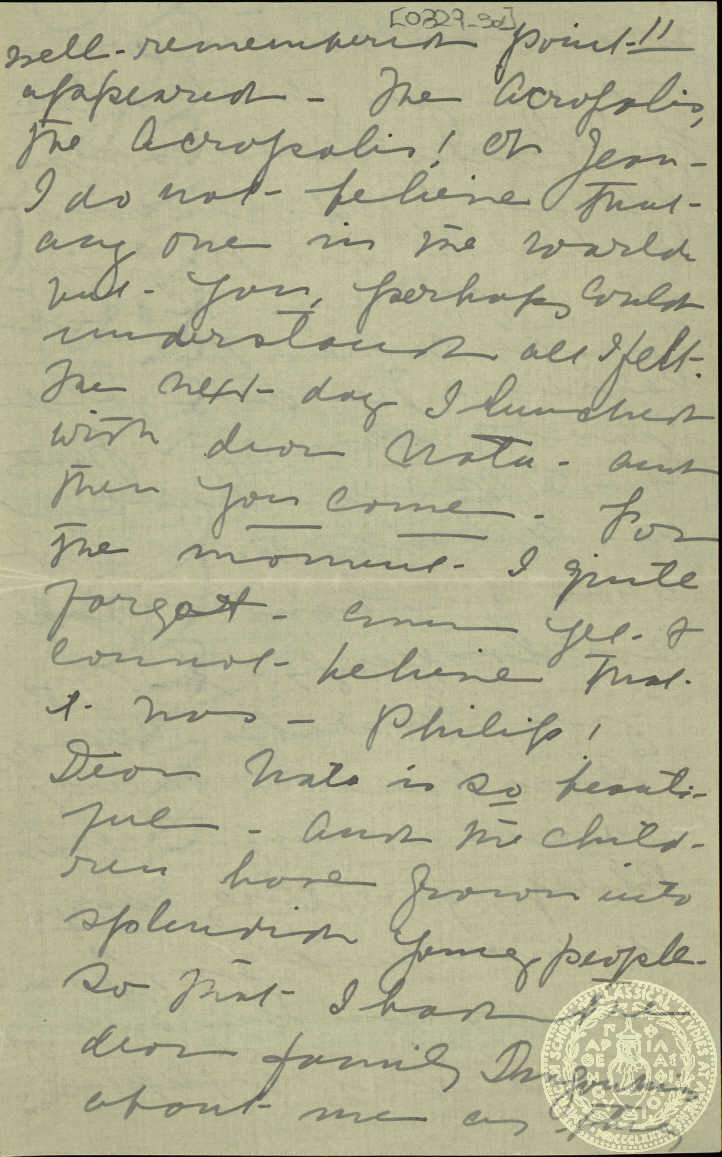 [0329_3d]
well-remembered point-"
appeared - The Acropolis,
the Acropolis! Oh Jean -
I do not - believe that -
any one in the world
but - you, perhaps could
understand all I felt.
The next - day I lunched
with dear Nata - and
then you come - For
the moment - I quite
forgot - even yet - I
cannot - believe that -
it was - Philip!
Dear Nata is so beauti-
ful - And the child-
ren have grown into
splendid young people -
So that - I had the
dear family
about me as they